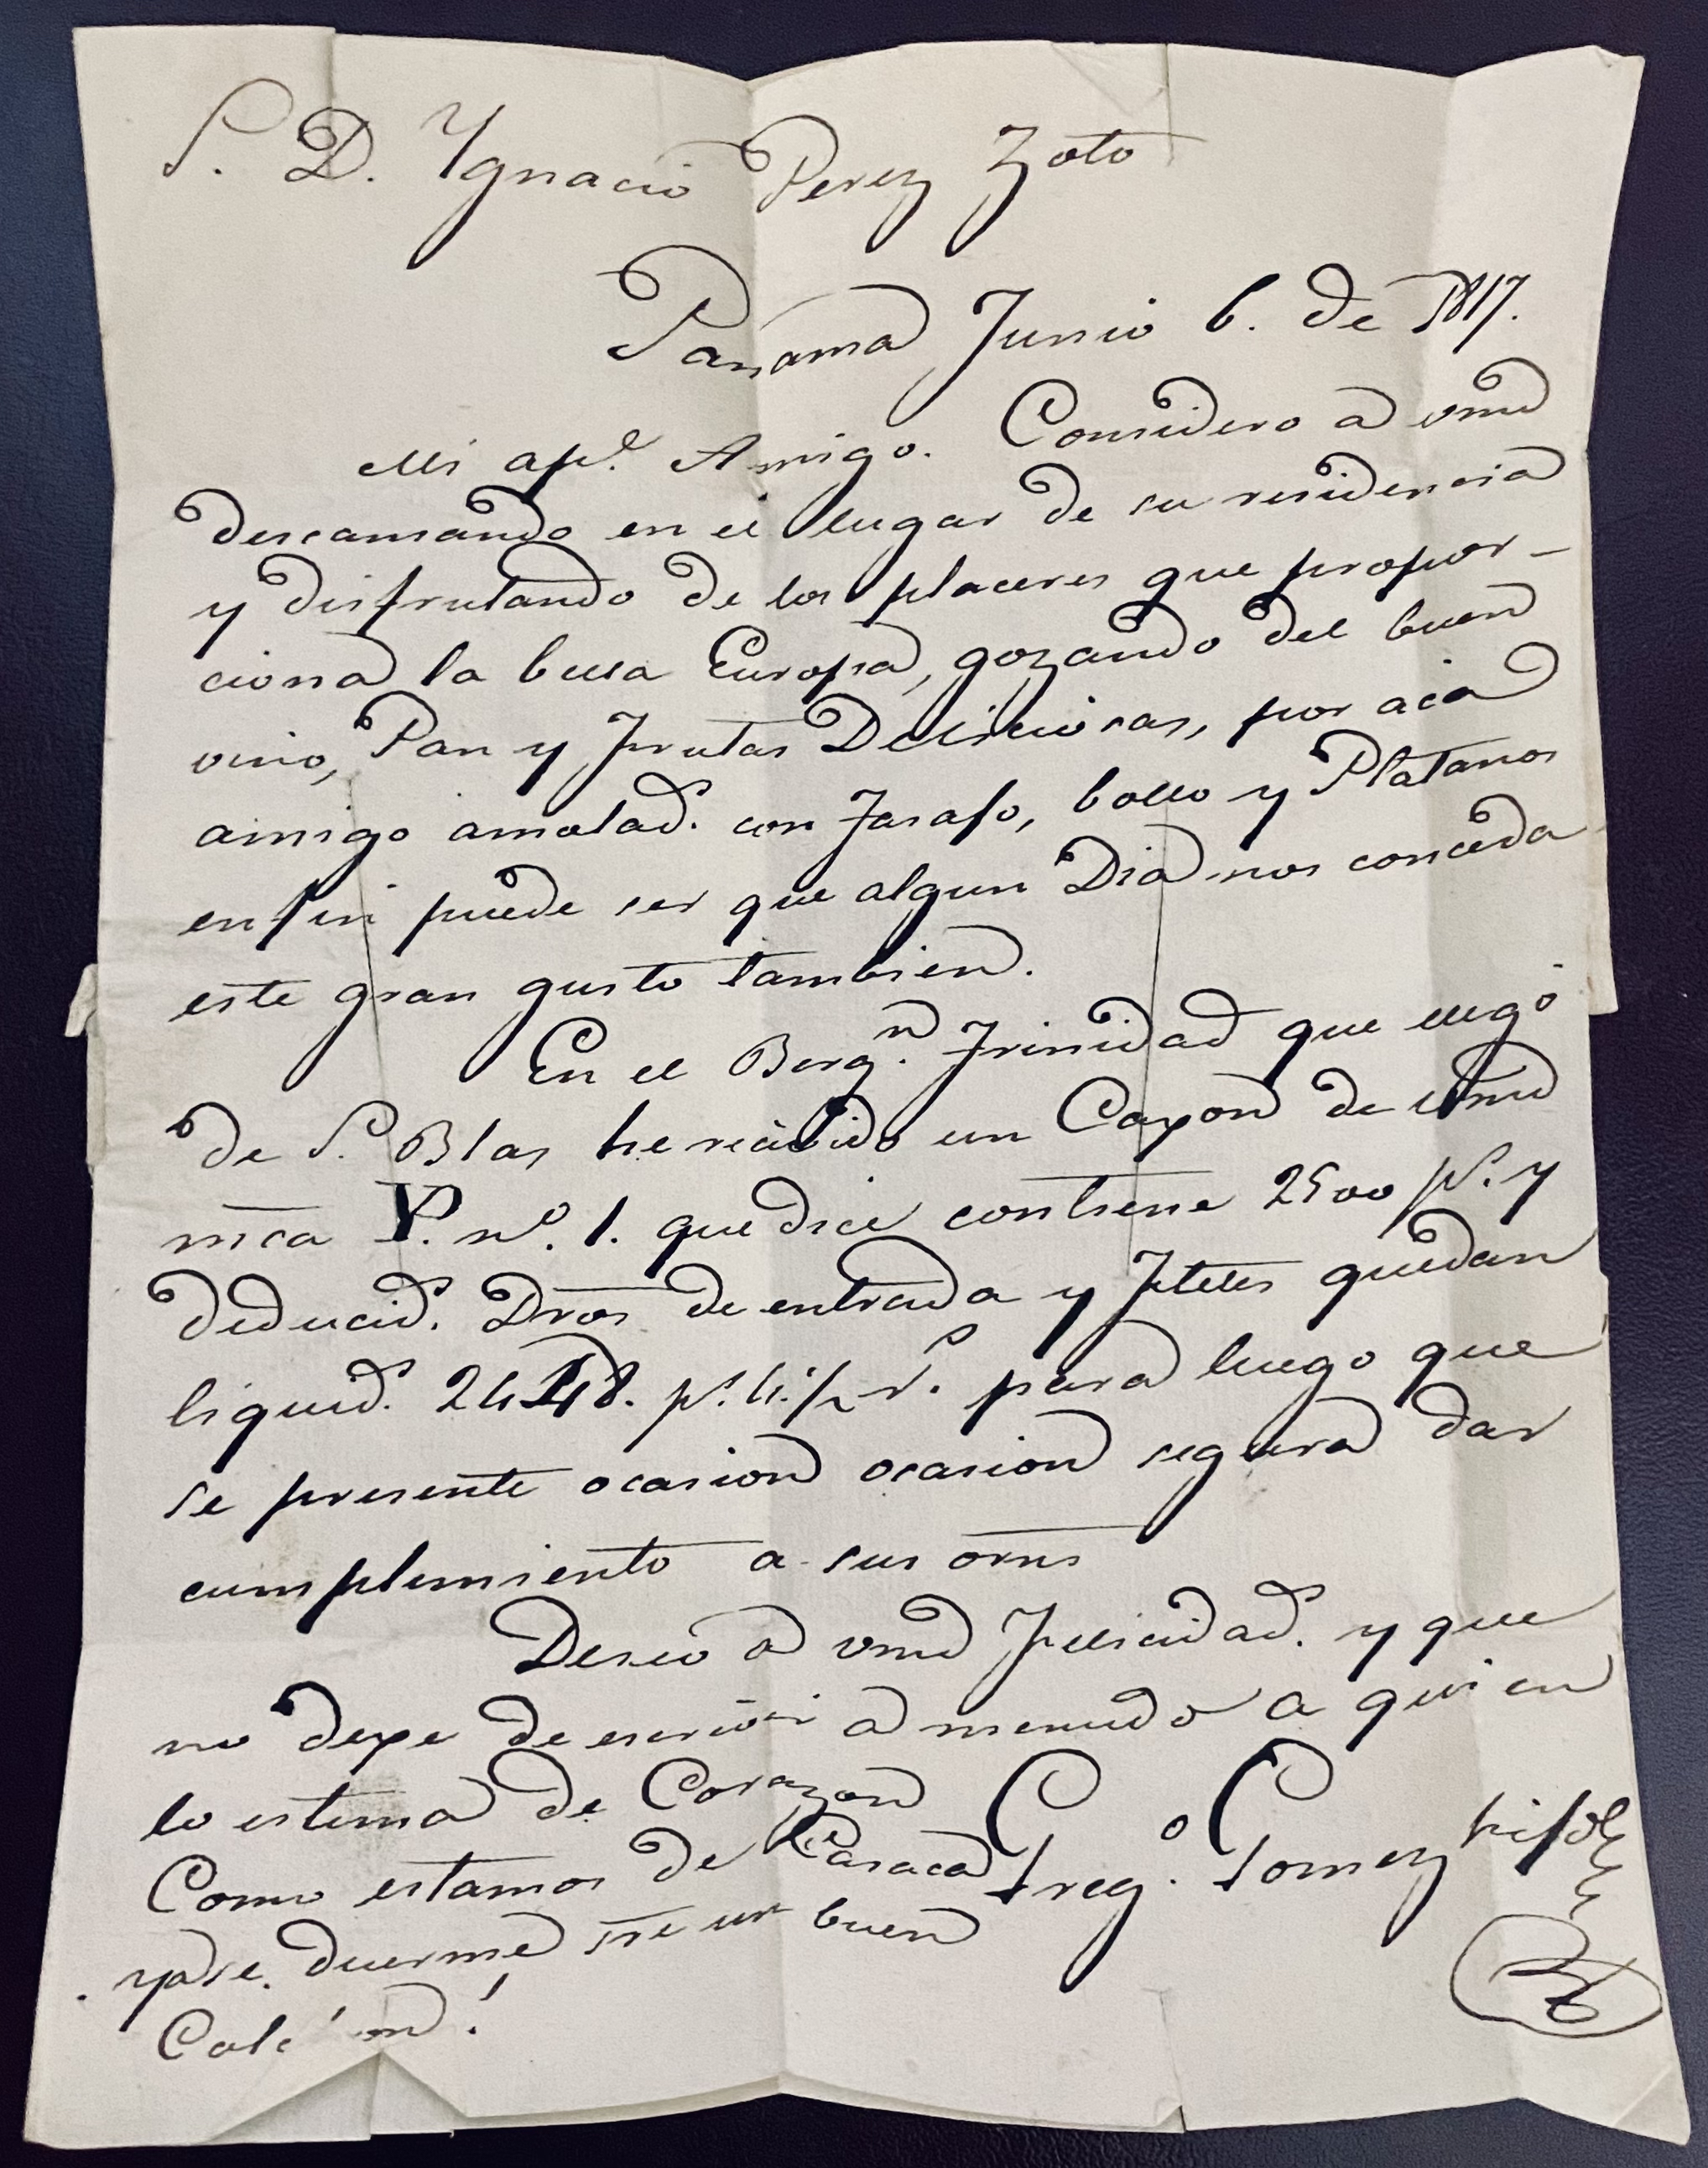 S. D. Ygnacio Perez Zoto
Panama Junio 6. de 1817.
Mi ap.º Amigo. Considero a vmd
descansando en el lugar de su residencia
y disfrutando de los placeres que propor-
ciona la bella Europa, gozando del buen
vino, Pan y Frutas Deliciosas, por acá
amigo amolad.s con Tasajo, bollo y Platanos
enfin puede ser que algun Dia nos conceda
este gran gusto tambien.
En el Berg.n Trinidad que llegó
de S. Blas he recibido un Caxon de vmd
mca Y. nº. 1. que dice contiene 2500 p.s y
deducid.s Dros de entrada y Fletes quedan
liquid.s 2448. p.s 4.½ r.s para luego que
se presente ocasion ocasion segura dar
cumplemiento a sus orns
Deseo a vmd Felicidad.s y que
no dexe de escribir a menudo a quien
lo estima de Corazon
Greg.o Gomez
Como estamos de
ya se duerme sre un buen